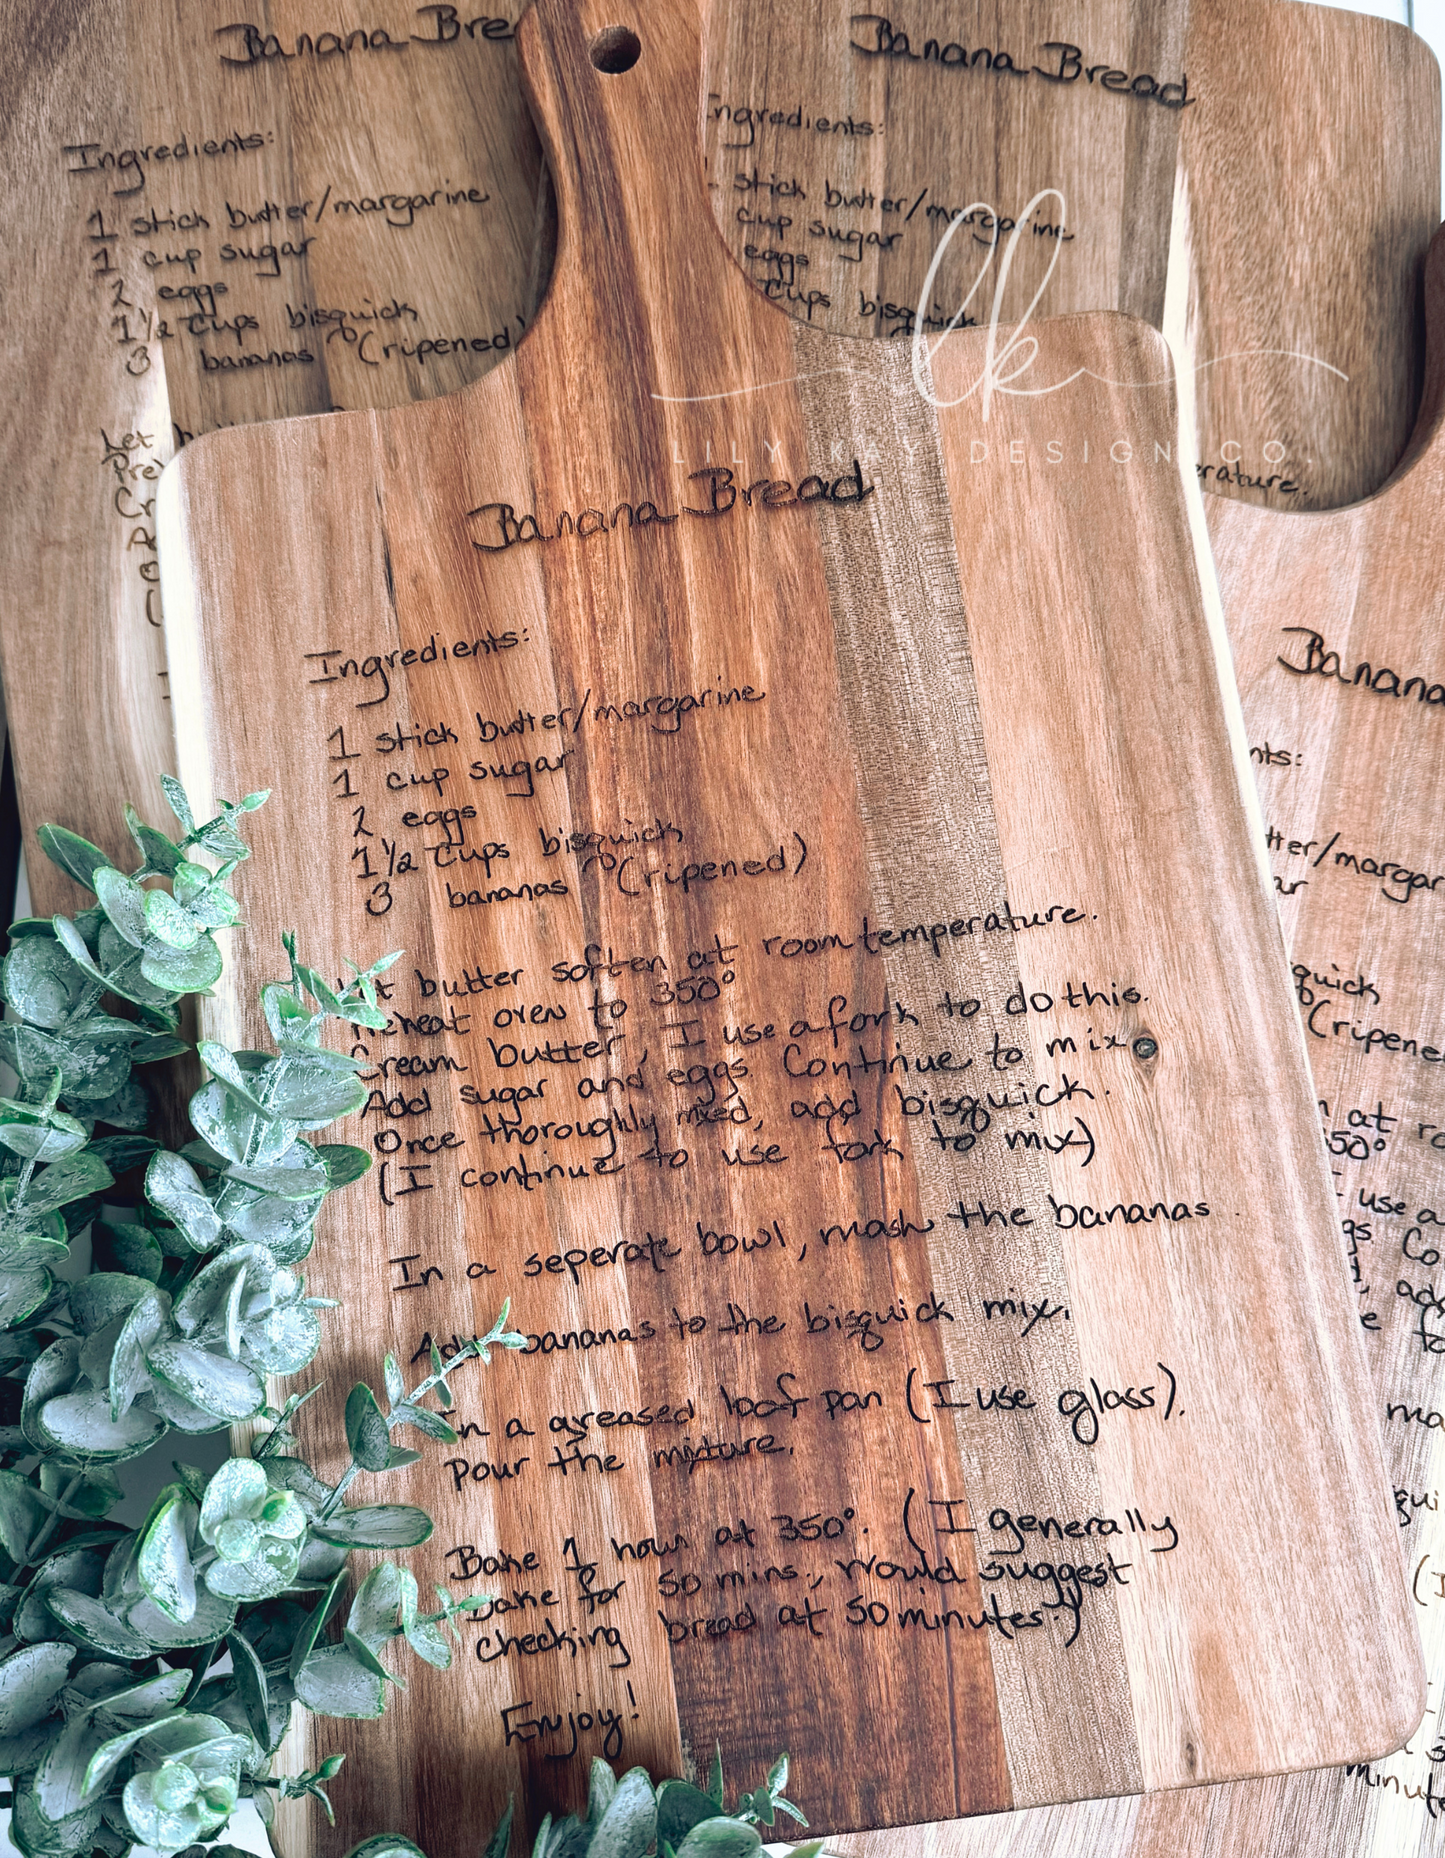 Banana Bre
Ingredients:
1 stick butter/margarine
1 cup sugar
2 eggs
1 1/2 cups bisquick
3 bananas (ripened)
Let
Banana Bread
ngredients:
stick butter/margarine
cup sugar
eggs
cups bisquick
erature.
lk
LILY KAY DESIGN CO.
Banana Bread
Ingredients:
1 stick butter/margarine
1 cup sugar
2 eggs
1 1/2 cups bisquick
3 bananas (ripened)
Let butter soften at room temperature.
Preheat oven to 350°
Cream butter, I use a fork to do this.
Add sugar and eggs. Continue to mix.
Once thoroughly mixed, add bisquick.
(I continue to use fork to mix)
In a seperate bowl, mash the bananas.
Add bananas to the bisquick mix.
In a greased loaf pan (I use glass).
pour the mixture.
Bake 1 hour at 350°. (I generally
bake for 50 mins., would suggest
checking bread at 50 minutes.)
Enjoy!
Banana
nts:
tter/margar
ar
quick
(ripene
at ro
350°
use a
gs. Co
minut